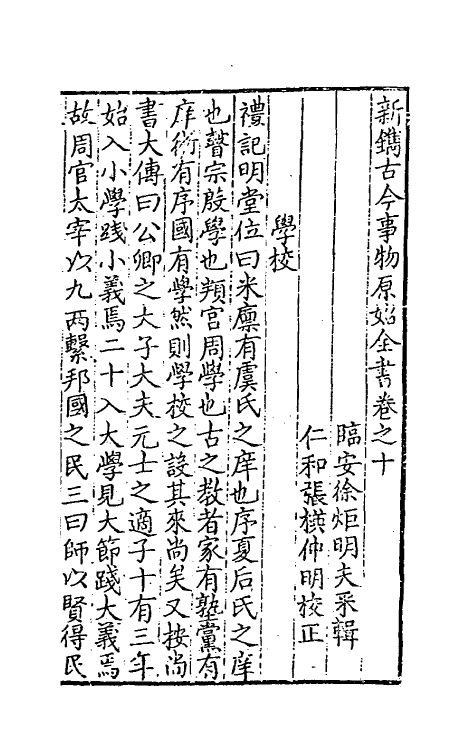 新鐫古今事物原始全書卷之十
臨安徐炬明夫采輯
仁和張棋仲明校正
學校
禮記明堂位曰米廩有虞氏之庠也序夏后氏之庠
也瞽宗殷學也頖宮周學也古之教者家有塾黨有
庠術有序國有學然則學校之設其來尚矣又按尚
書大傳曰公卿之大子大夫元士之適子十有三年
始入小學踐小義焉二十入大學見大節踐大義焉
故周官太宰以九兩繫邦國之民三曰師以賢得民